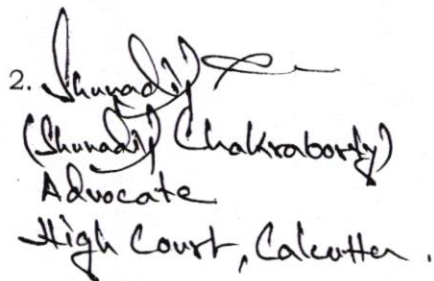 2. Shunadij
(Shunadij Chakraborty)
Advocate
High Court, Calcutta.